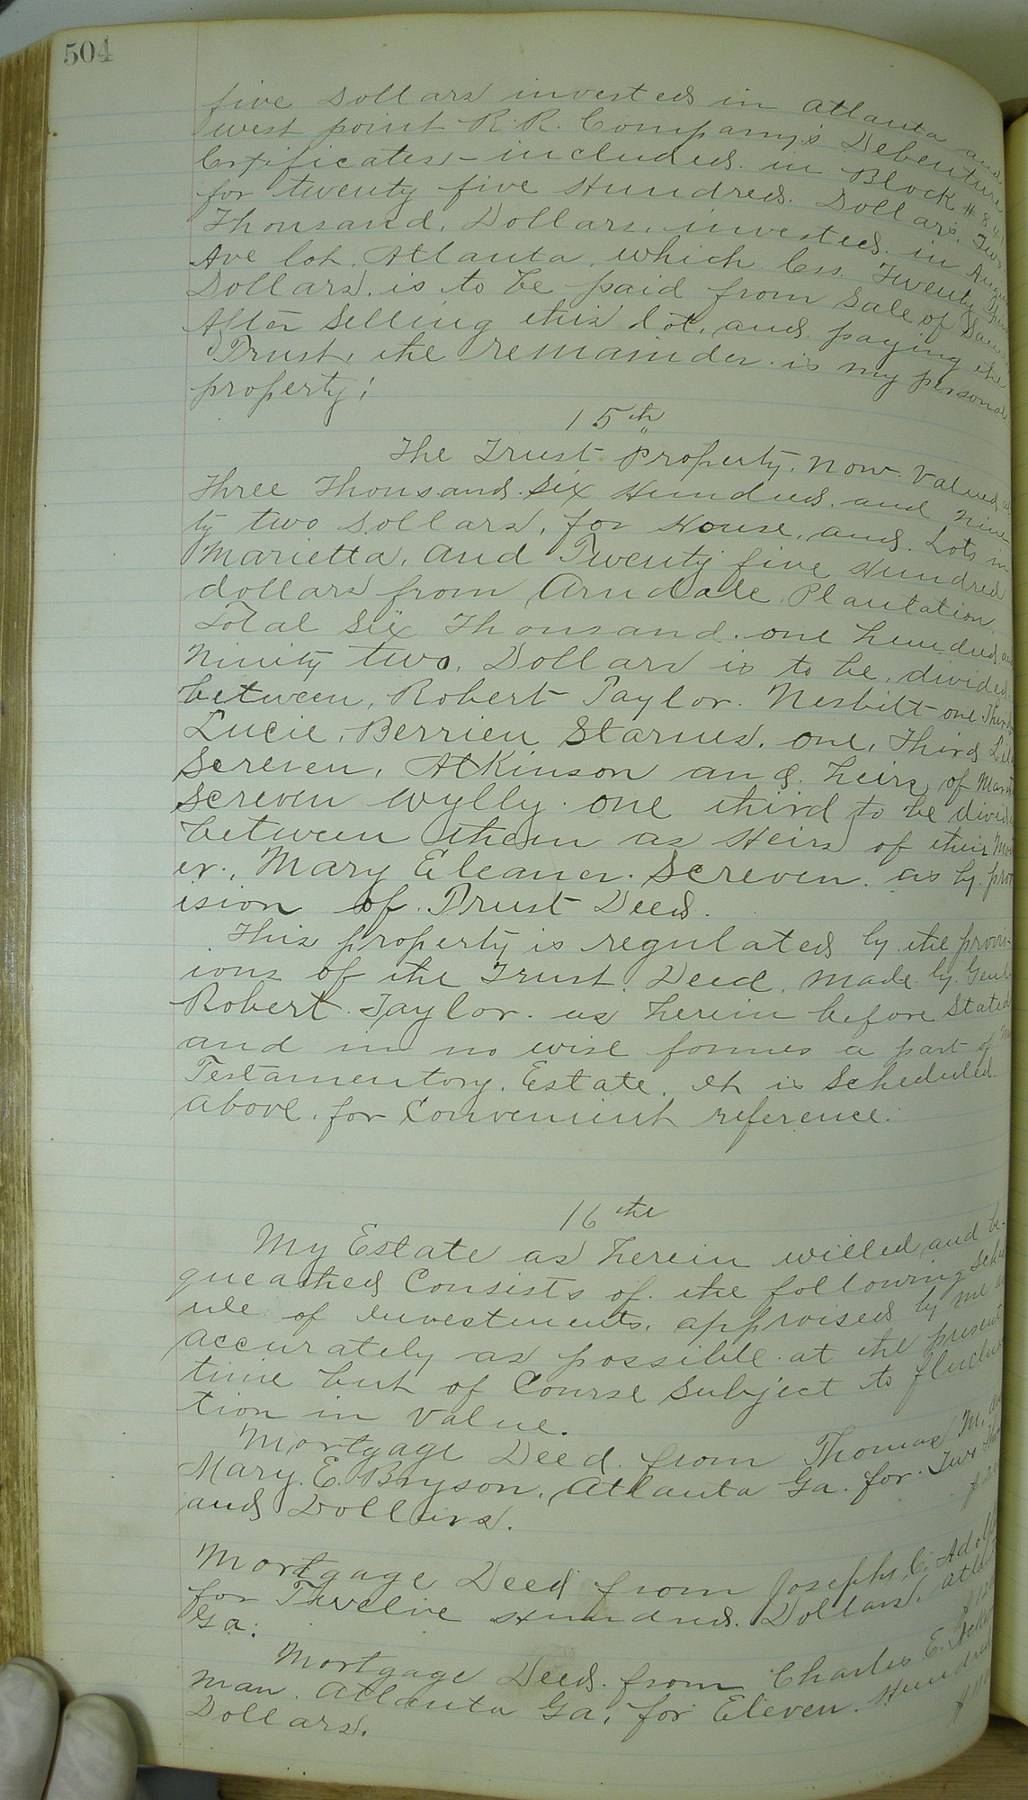 504
five Dollars invested in Atlanta and
west point R. R. Company's Debenture
Certificates - included in Block # 8
for twenty five Hundred Dollars. Two
Thousand Dollars invested in
Ave lot. Atlanta which less Twenty five
Dollars is to be paid from Sale of Same
After Selling this lot, and paying the
Trust, the remainder is my personal
property;
15th
The Trust Property. Now Valued at
Three Thousand Six Hundred and Nine-
ty two Dollars, for House, and Lots in
Marietta, and Twenty five Hundred
dollars from Arndale Plantation.
Total Six Thousand one hundred and
Ninity two, Dollars is to be, divided
between, Robert Taylor Nesbitt one Third
Lucie, Berrien Starnes, one, Third
Screven, Atkinson and Heirs of
Screven Wylly one third to be divided
between them as Heirs of their Moth
er, Mary Eleaner Screven as by prov
ision of Trust Deed.
This property is regulated by the provis-
ions of the Trust Deed made by Genl
Robert Taylor as herein before Stated
and in no wise formes a part of my
Testamentory Estate. It is Scheduled
above for Convenient reference.
16the
My Estate as herein willed, and be-
queathed Consists of the following Sched
ule of Investments, appraised by me as
accurately as possible at the present
time but of Course Subject to fluctua
tion in value.
Mortgage Deed from Thomas M. and
Mary E. Bryson, Atlanta Ga. for Two Thous
and Dollars.
Mortgage Deed from Joseph C.
for Twelve Hundred Dollars, Atlanta
Ga.
Mortgage Deed from Charles E.
man Atlanta Ga, for Eleven Hundred
Dollars.